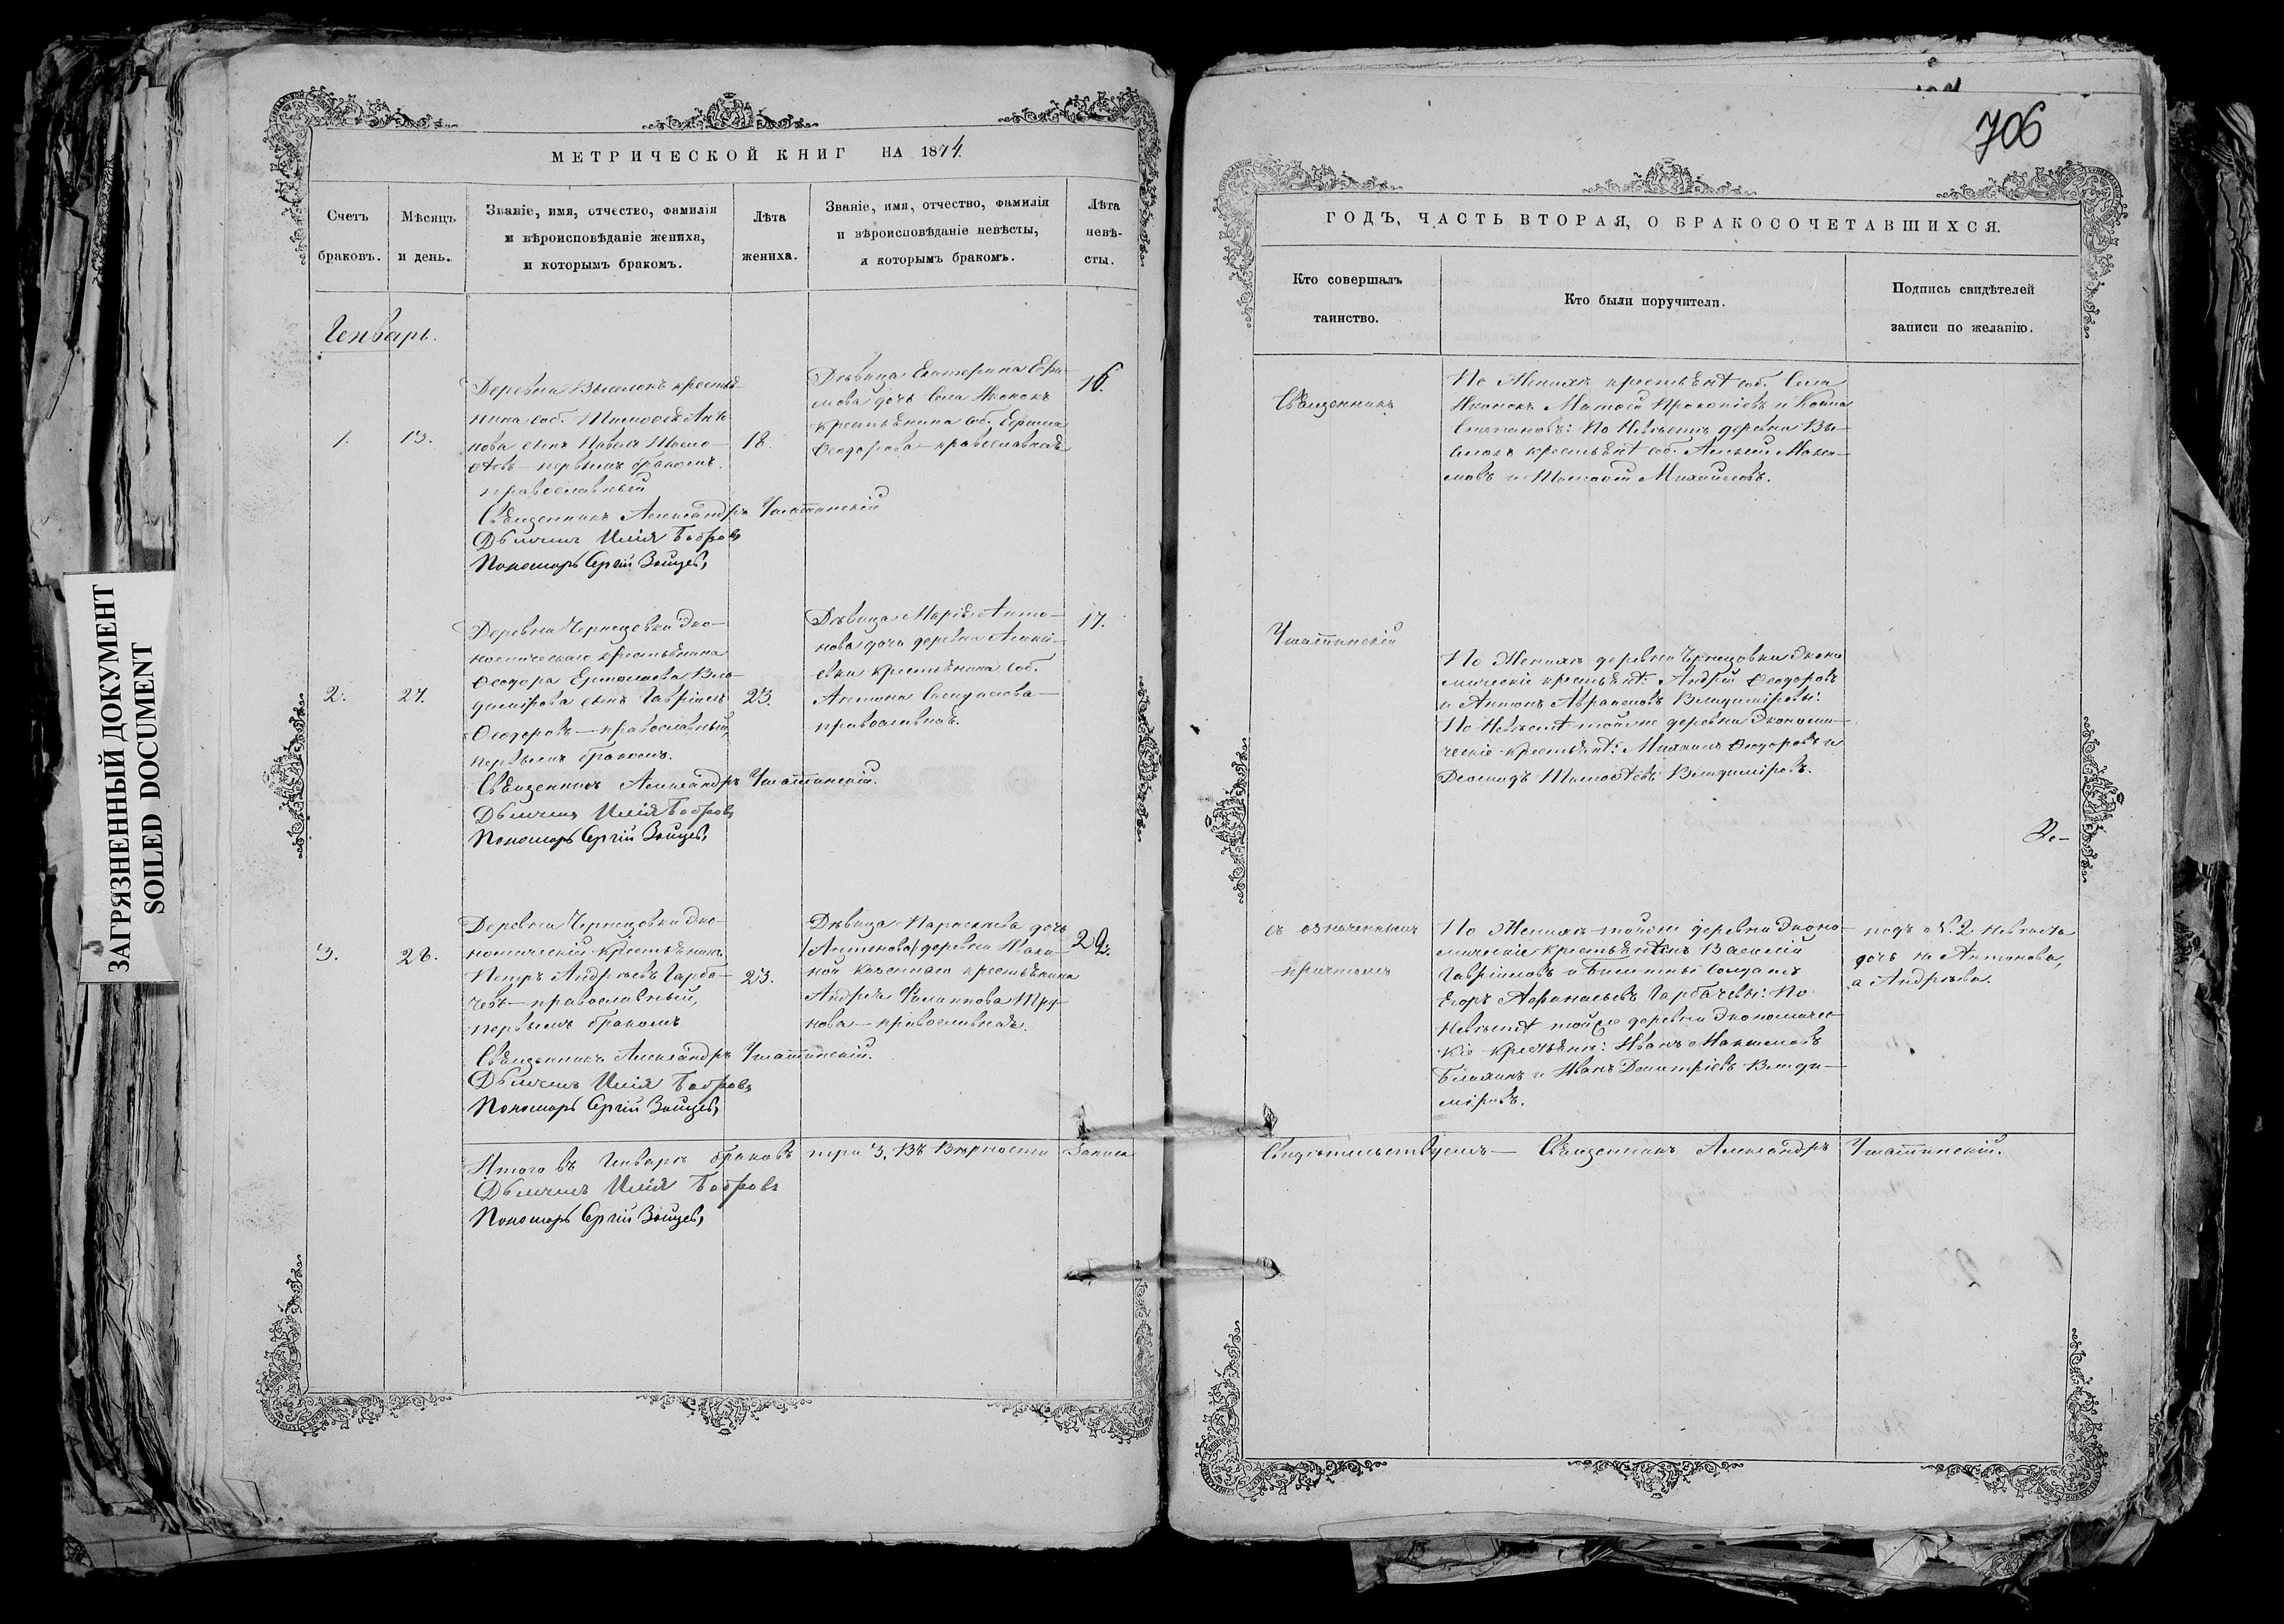 МЕТРИЧЕСКОЙ КНИГ НА 1874.
Счетъ браковъ.
Мѣсяцъ и день.
Званіе, имя, отчество, фамилія
и вѣроисповѣданіе жениха,
и которымъ бракомъ.
Лѣта жениха.
Званіе, имя, отчество, фамилія
и вѣроисповѣданіе невѣсты,
и которымъ бракомъ.
Лѣта невѣ-
сты.
Генварь.
1.
13.
Деревни Выселокъ крестья-
нина соб. Тимоѳея Анто-
нова сынъ Павелъ Тимо-
ѳеевъ – первымъ бракомъ.
православный
18.
Дѣвица Екатерина Ефи-
мова дочь Села
крестьянина соб. Ефима
Ѳеодорова – православная
16.
Священникъ Александръ
Дьячекъ Илія Бобровъ
Пономарь Сергій Зайцевъ
2.
27.
Деревни Чернцовки Эко-
номическаго крестьянина
Ѳеодора Ермолаева Вла-
димірова сынъ Гавріилъ
Ѳеодоровъ – православный,
первымъ бракомъ.
23.
Дѣвица Марія Анто-
нова дочь деревни Алексѣ-
евки крестьянина соб.
Антона
православная.
17.
Священникъ Александръ
Дьячекъ Илія Бобровъ
Пономарь Сергій Зайцевъ
3.
28.
Деревни Чернцовки Эко-
номическій крестьянинъ
Петръ Андреевъ Гарба-
чевъ – православный,
первымъ бракомъ
23.
Дѣвица Параскева дочь
(Антонова) деревни
казеннаго крестьянина
Андрея Филиппова
нова – православная.
20.
Священникъ Александръ
Дьячекъ Илія Бобровъ
Пономарь Сергій Зайцевъ
Итого въ Генварѣ браковъ три 3. Въ вѣрности записи
Дьячекъ Илія Бобровъ
Пономарь Сергій Зайцевъ
706
ГОДЪ, ЧАСТЬ ВТОРАЯ, О БРАКОСОЧЕТАВШИХСЯ.
Кто совершалъ
таинство.
Кто были поручители.
Подпись свидѣтелей
записи по желанію.
Священникъ
По Женихѣ крестьяне соб. Села
Матѳей Прокопіевъ и Козма
Степановъ: По Невѣстѣ деревни Вы-
селокъ крестьяне соб. Алексѣй Макси-
мовъ и Тимоѳей Михайловъ.
По Женихѣ деревни Чернцовки Эконо
мическіе крестьяне: Андрей Ѳеодоровъ
и Антонъ Авраамовъ Владиміровы:
По Невѣстѣ тойже деревни Экономи-
ческіе крестьяне: Михаилъ Ѳеодоровъ и
Діомидъ Тимоѳеевъ Владиміровъ.
съ означеннымъ
причтомъ
По Женихѣ тойже деревни Эконо-
мическіе крестьянинъ Василій
Гавріиловъ и билетный солдатъ
Егоръ Аѳанасьевъ Гарбачевы: По
Невѣстѣ тойже деревни Экономичес-
кіе крестьяне: Иванъ Максимовъ
и Иванъ Димитріевъ Влади-
міровъ.
подъ №. 2 невѣста
дочь не Антонова,
а Андреева.
Свидѣтельствуемъ – Священникъ Александръ
ЗАГРЯЗНЕННЫЙ ДОКУМЕНТ
SOILED DOCUMENT